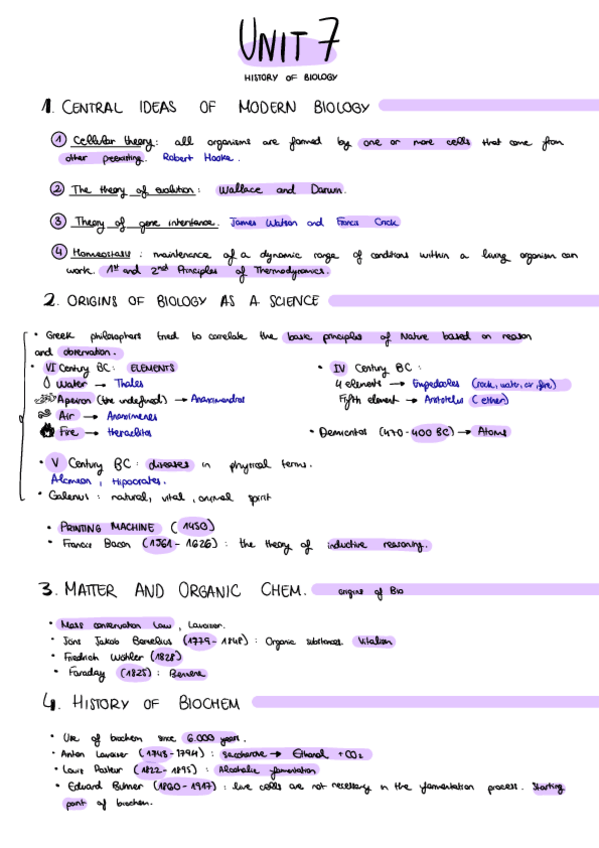 UNIT 7
HISTORY OF BIOLOGY
1. CENTRAL IDEAS OF MODERN BIOLOGY
① Cellular theory: all organisms are formed by one or more cells that come from
other preexisting. Robert Hooke.
② The theory of evolution: Wallace and Darwin.
③ Theory of gene inheritance. James Watson and Francis Crick
④ Homeostasis: maintenance of a dynamic range of conditions within a living organism can
work. 1st and 2nd Principles of Thermodynamics.
2. ORIGINS OF BIOLOGY AS A SCIENCE
• Greek philosophers tried to correlate the basic principles of Nature based on reason
and observation.
• VI Century BC: ELEMENTS
Water → Thales
Apeiron (the undefined) → Anaximandros
Air → Anaximenes
Fire → Heraclitos
• IV Century BC:
4 elements → Empedocles (rock, water, air, fire)
Fifth element → Aristotelus (ether)
• Demicritos (470-400 BC) → Atoms
• V Century BC: diseases in physical terms.
Alcmeon, Hipocrates.
• Galenus: natural, vital, animal spirit
• PRINTING MACHINE (1450)
• Francis Bacon (1561-1626): the theory of inductive reasoning.
3. MATTER AND ORGANIC CHEM. origins of Bio
• Mass conservation law, Lavoisier.
• Jöns Jakob Berzelius (1779-1848): Organic substances. Vitalism
• Friedrich Wöhler (1828)
• Faraday (1825): Benzene
4. HISTORY OF BIOCHEM
• Use of biochem since 6.000 years.
• Anton Lavoiser (1743-1794): Saccharose → Ethanol + CO2
• Louis Pasteur (1822-1895): Alcoholic fermentation
• Eduard Buhner (1860-1917): live cells are not necessary in the fermentation process. Starting
point of biochem.